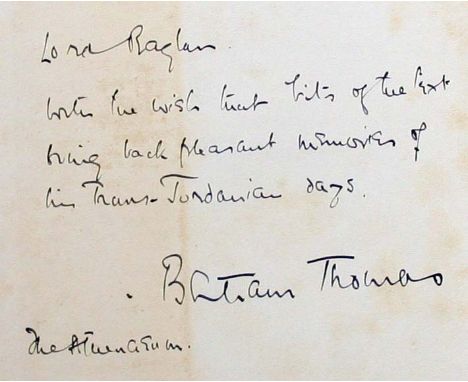 Lord Raglan.
with the wish that bits of the text
bring back pleasant memories of
his Trans-Jordanian days.
Bertram Thomas
The Athenaeum.